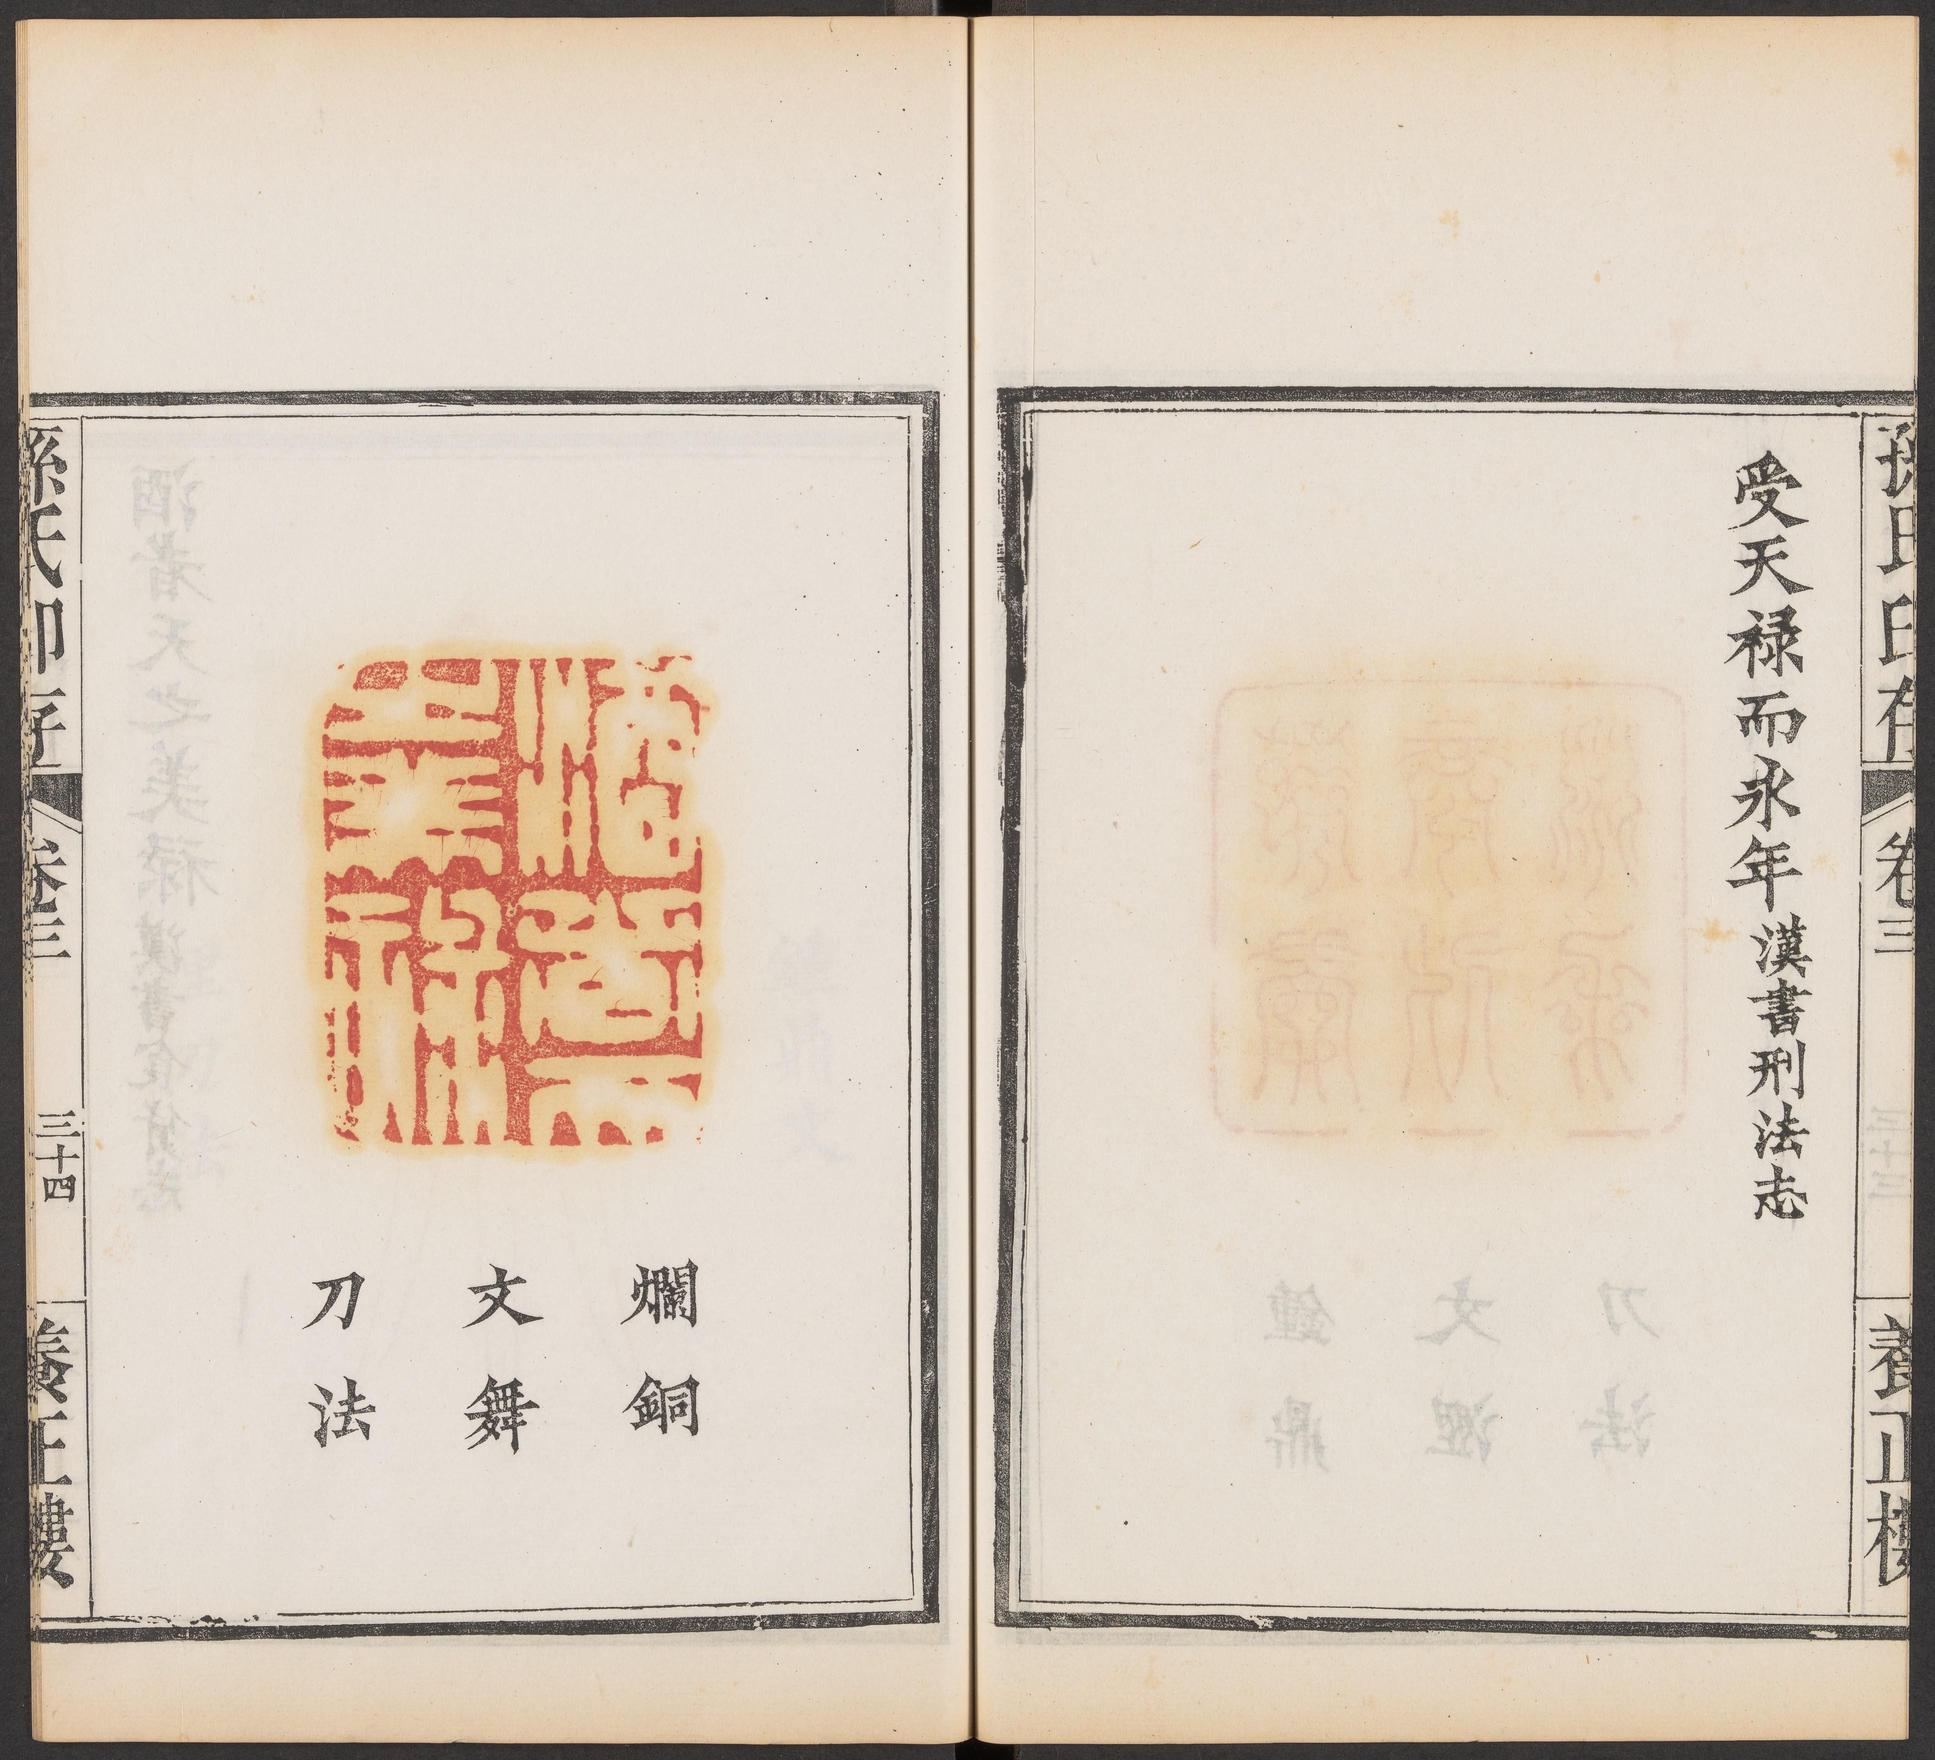 孫氏印存
卷三
養正樓
受天祿而永年漢書刑法志
爛銅
文舞
刀法
孫氏印存
卷三
三十四
養正樓